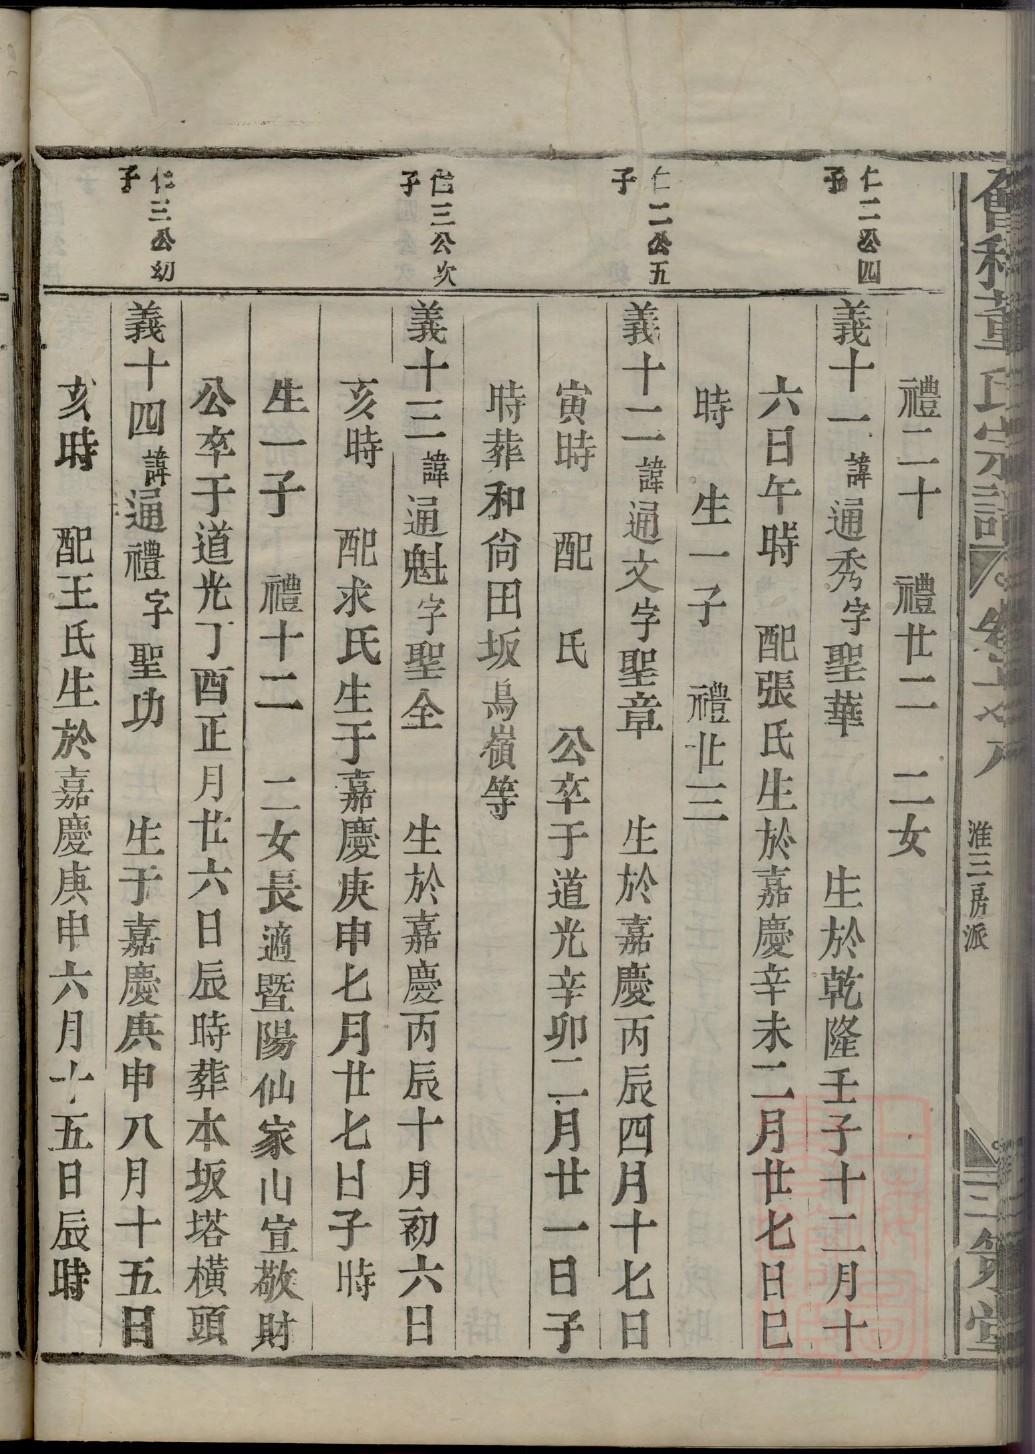 會稽董氏宗譜
卷
淮三房派
三策堂
禮二十 禮廿二 二女
仁二公四子
義十一諱通秀字聖華 生於乾隆壬子十二月十
六日午時 配張氏生於嘉慶辛未二月廿七日巳
時 生一子 禮廿三
仁二公五子
義十二諱通文字聖章 生於嘉慶丙辰四月十七日
寅時 配 氏 公卒于道光辛卯二月廿一日子
時葬和尙田坂鳥嶺等
仁三公次子
義十三諱通魁字聖全 生於嘉慶丙辰十月初六日
亥時 配求氏生于嘉慶庚申七月廿七日子時
生一子 禮十二 二女長適暨陽仙家山宣敬財
公卒于道光丁酉正月廿六日辰時葬本坂塔橫頭
仁三公幼子
義十四諱通禮字聖功 生于嘉慶庚申八月十五日
亥時 配王氏生於嘉慶庚申六月十五日辰時